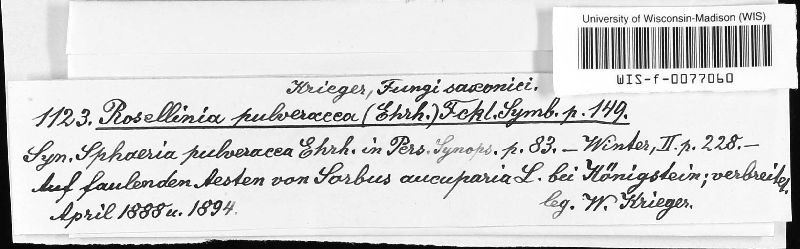 University of Wisconsin-Madison (WIS)
WIS-f-0077060
Krieger, Fungi saxonici.
1123. Rosellinia pulveracea (Ehrh.) Fckl. Symb. p. 149.
Syn. Sphaeria pulveracea Ehrh. in Pers. Synops. p. 83. — Winter, II. p. 228. —
Auf faulenden Aesten von Sorbus aucuparia L. bei Königstein; verbreitet.
April 1888 u. 1894.
leg. W. Krieger.